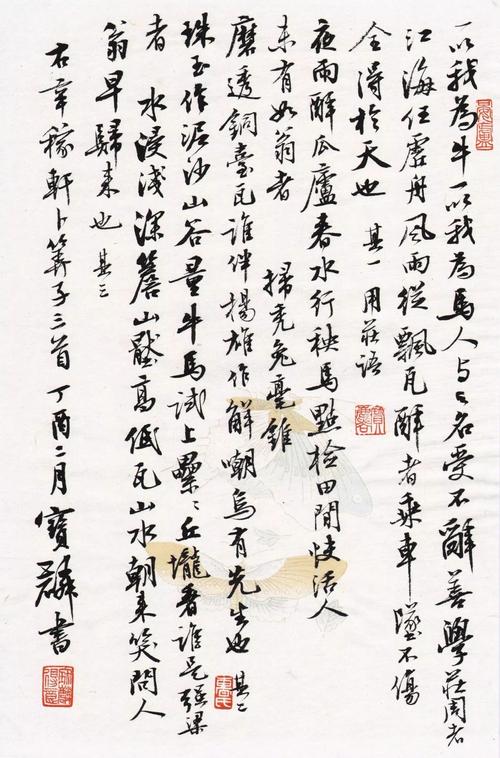 一以我為牛一以我為馬人与之名受不辭善學莊周者
江海任虛舟風雨從飄瓦醉者乘車墜不傷
全得於天也 其一 用莊語
夜雨醉瓜廬春水行秧馬點檢田間快活人
未有如翁者 掃禿兔毫錐
磨透銅臺瓦誰伴揚雄作解嘲烏有先生也 其二
珠玉作泥沙山谷量牛馬試上纍〻丘壠看誰是強梁
者 水浸淺深簷山壓高低瓦山水朝来笑問人
翁早歸来也 其三
右辛稼軒卜算子三首 丁酉二月 寶麟書